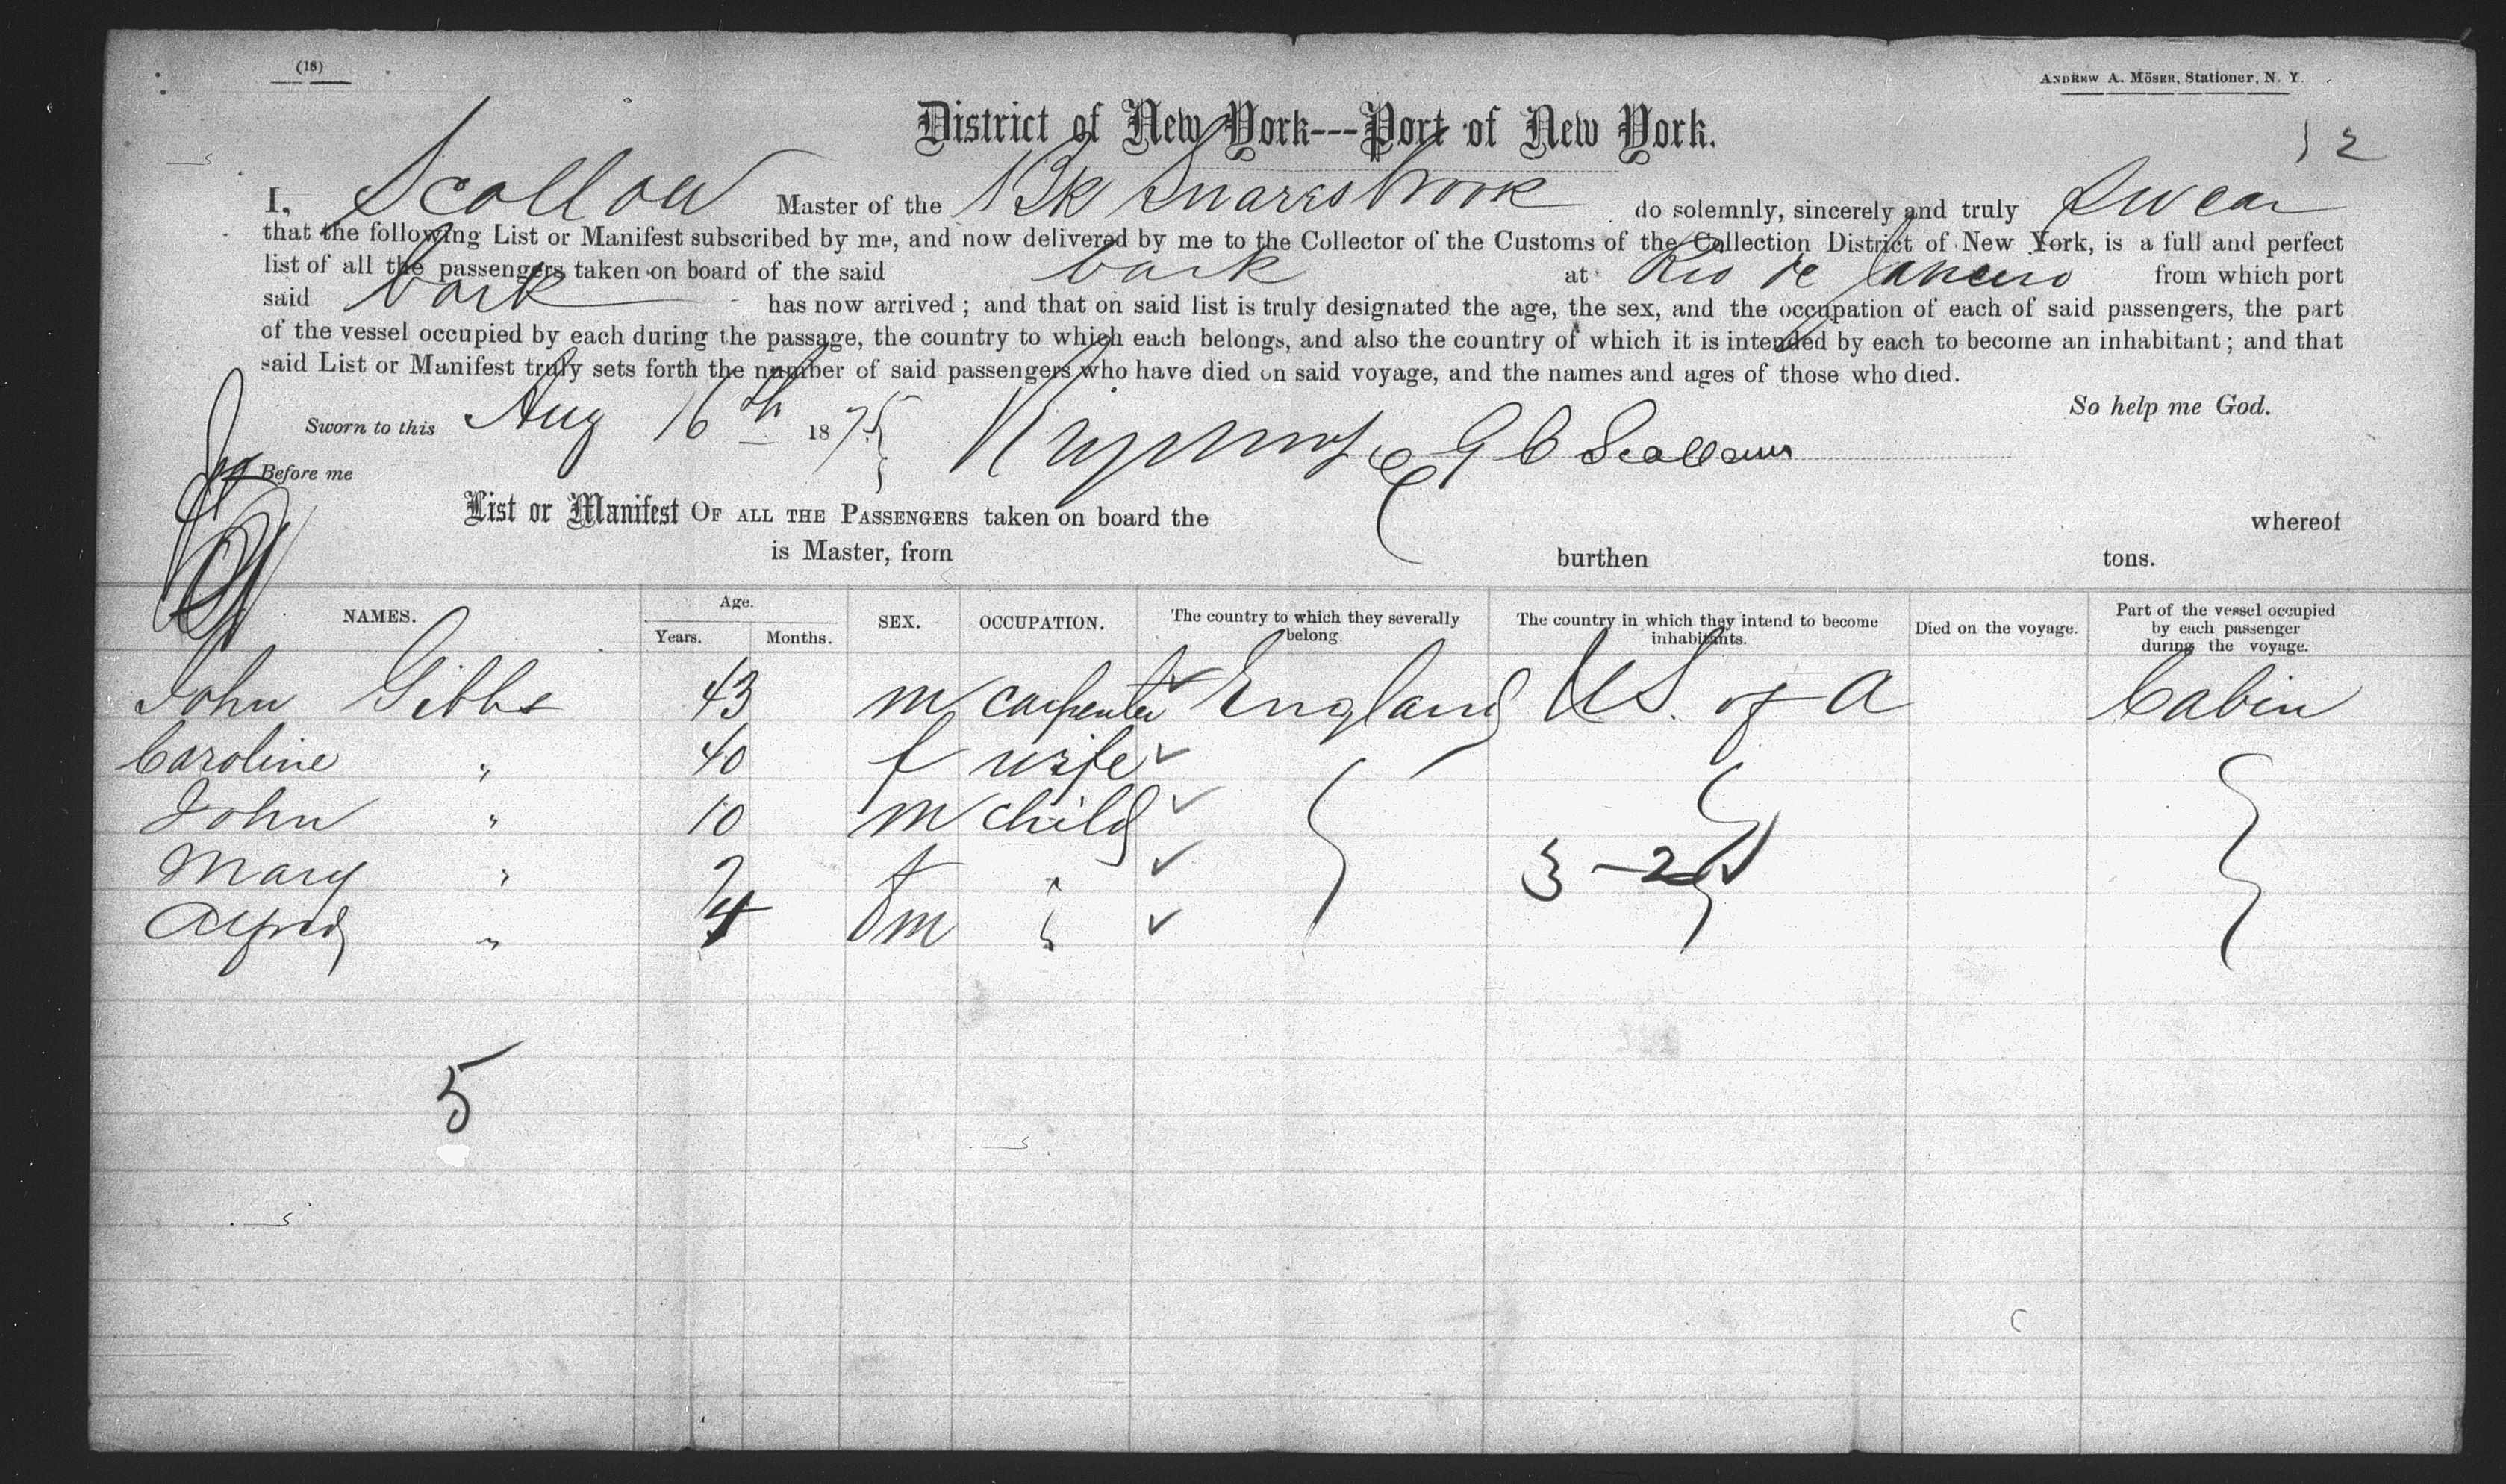 (18)
ANDREW A. MÖSER, Stationer, N. Y.
District of New York---Port of New York.
2
I, Scallow Master of the Bk Snaresbrook do solemnly, sincerely and truly Swear
that the following List or Manifest subscribed by me, and now delivered by me to the Collector of the Customs of the Collection District of New York, is a full and perfect
list of all the passengers taken on board of the said bark at Rio de Janeiro from which port
said bark has now arrived ; and that on said list is truly designated the age, the sex, and the occupation of each of said passengers, the part
of the vessel occupied by each during the passage, the country to which each belongs, and also the country of which it is intended by each to become an inhabitant ; and that
said List or Manifest truly sets forth the number of said passengers who have died on said voyage, and the names and ages of those who died.
So help me God.
Sworn to this Aug 16th 1875 G C
Before me
List or Manifest OF ALL THE PASSENGERS taken on board the whereof
is Master, from burthen tons.
NAMES. Age. Years. Months. SEX. OCCUPATION. The country to which they severally belong. The country in which they intend to become inhabitants. Died on the voyage. Part of the vessel occupied by each passenger during the voyage.
John Gibbs 43 m carpenter England US. of A Cabin
Caroline " 40 f wife
John " 10 m child
Mary " 7 f "
Alfred " 4 m "
5